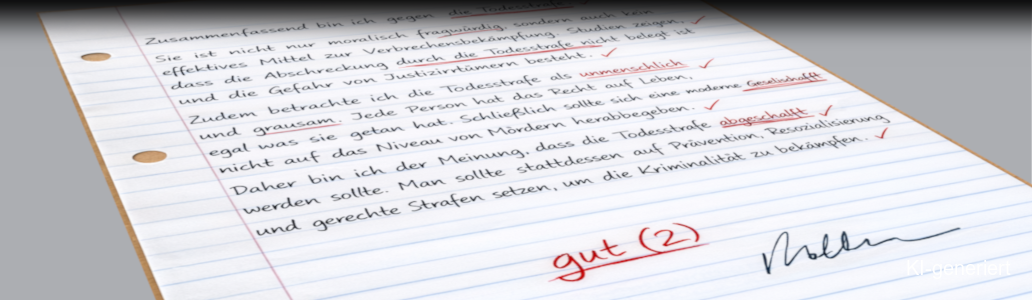 Zusammenfassend bin ich gegen die Todesstrafe.
Sie ist nicht nur moralisch fragwürdig, sondern auch kein
effektives Mittel zur Verbrechensbekämpfung. Studien zeigen,
dass die Abschreckung durch die Todesstrafe nicht belegt ist
und die Gefahr von Justizirrtümern besteht.
Zudem betrachte ich die Todesstrafe als unmenschlich
und grausam. Jede Person hat das Recht auf Leben,
egal was sie getan hat. Schließlich sollte sich eine moderne Geselschafft
nicht auf das Niveau von Mördern herabbegeben.
Daher bin ich der Meinung, dass die Todesstrafe abgeschalft
werden sollte. Man sollte stattdessen auf Prävention, Resozialisierung
und gerechte Strafen setzen, um die Kriminalität zu bekämpfen.
gut (2)
KI-generiert